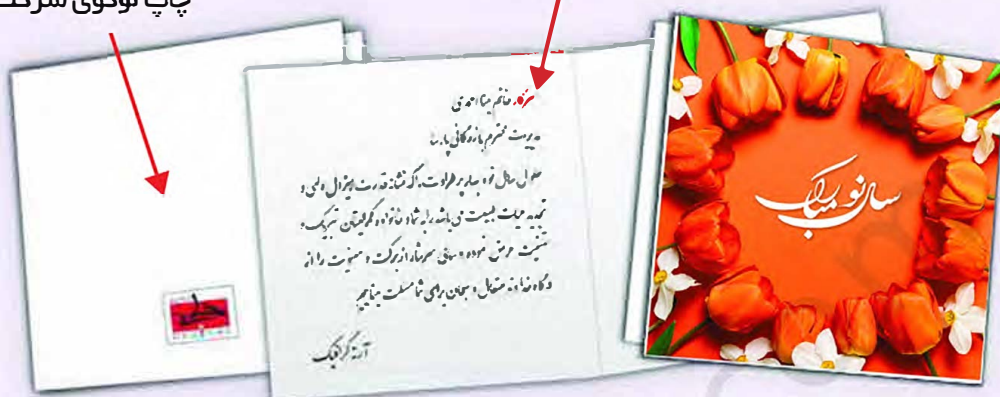 چاپ لوگوی شرکت
سرکار خانم مینا احمدی
مدیریت محترم بازرگانی پارسا
حلول سال نو و بهار پر طراوت را که نشانه قدرت لایزال الهی و
تجدید حیات طبیعت می باشد را به شما و خانواده گرامیتان تبریک و
تهنیت عرض نموده و سالی سرشار از برکت و معنویت را از
درگاه خداوند متعال و سبحان برای شما مسئلت مینماییم
گرافیک
سال نو مبارک